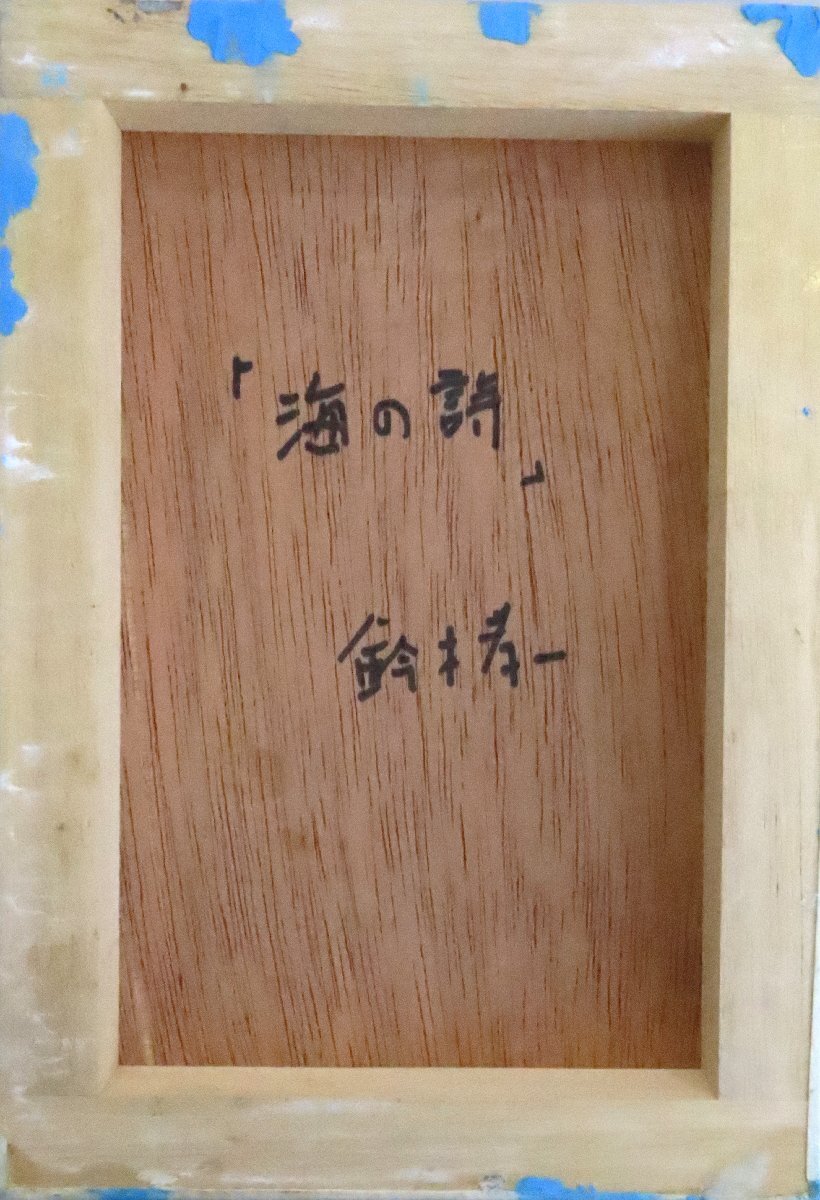 「海の詩」
鈴木孝一